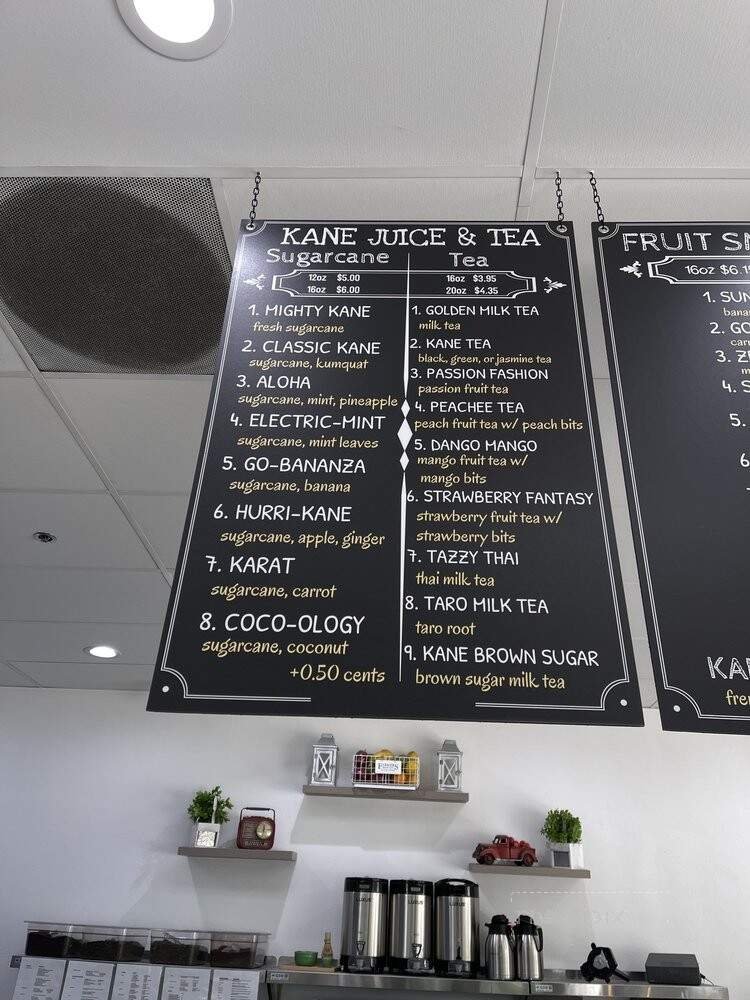 KANE JUICE & TEA
Sugarcane
12oz $5.00
16oz $6.00
1. MIGHTY KANE
fresh sugarcane
2. CLASSIC KANE
sugarcane, kumquat
3. ALOHA
sugarcane, mint, pineapple
4. ELECTRIC-MINT
sugarcane, mint leaves
5. GO-BANANZA
sugarcane, banana
6. HURRI-KANE
sugarcane, apple, ginger
7. KARAT
sugarcane, carrot
8. COCO-OLOGY
sugarcane, coconut
+0.50 cents
Tea
16oz $3.95
20oz $4.35
1. GOLDEN MILK TEA
milk tea
2. KANE TEA
black, green, or jasmine tea
3. PASSION FASHION
passion fruit tea
4. PEACHEE TEA
peach fruit tea w/ peach bits
5. DANGO MANGO
mango fruit tea w/
mango bits
6. STRAWBERRY FANTASY
strawberry fruit tea w/
strawberry bits
7. TAZZY THAI
thai milk tea
8. TARO MILK TEA
taro root
9. KANE BROWN SUGAR
brown sugar milk tea
FRUIT
16oz
1.
2.
3.
4.
5.
6
LUXUS
LUXUS
LUXUS